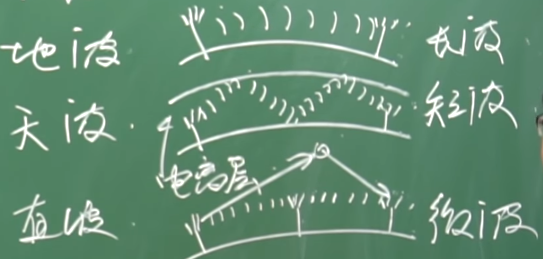 地波 长波
天波 短波
电离层
直波 微波